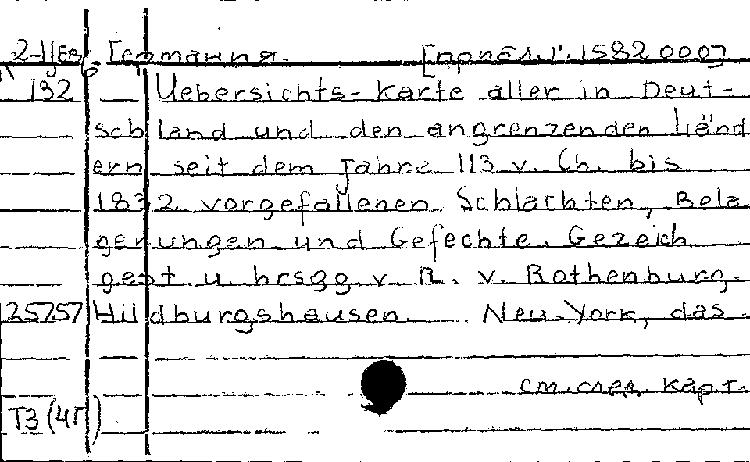 2-Пев. Германия. [прибл.1:1582000]
192 Uebersichts-Karte aller in Deut-
schland und den angrenzenden Länd
ern seit dem Jahre 113 v. Ch. bis
1832 vorgefallenen Schlachten, Bela
gerungen und Gefechte. Gezeich
gest u. hrsgg v. R. v. Rothenburg.
25757 Hildburgshausen. Neu-York, das.
см. след. карт.
ТЗ (4Г)